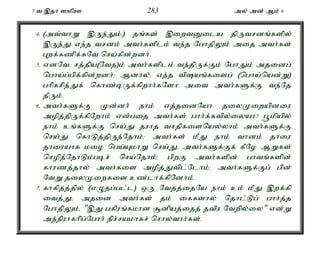 7 வ இதா ஸமிஊ 283 அல் அன் ஆம் 6
4. (அவ்வாறு இருந்தும்,) தங்கள் இறைவனுடைய திருவசனங்களில்
இருந்து எந்த வசனம் அவர்களிடம் வந்த போதிலும் அதை அவர்கள்
புறக்கணிக்கவே செய்கின்றனர்.
5. எனவே சத்திய(வேத)ம் அவர்களிடம் வந்திருக்கும் போதும் அதனைப்
பொய்ப்பிக்கின்றனர்; ஆனால், எந்த விஷயங்களைப் (பொய்யென்று)
பரிகசித்துக் கொண்டிருக்கிறார்களோ அவை அவர்களுக்கு வந்தே
தீரும்.
6. அவர்களுக்கு முன்னர் நாம் எத்தனையோ தலைமுறையினரை
அழித்திருக்கிறோம் என்பதை அவர்கள் பார்க்கவில்லையா? பூமியில்
நாம் உங்களுக்கு செய்து தராத வசதிகளையெல்லாம் அவர்களுக்கு
செய்து கொடுத்திருந்தோம்; அவர்கள் மீது நாம் வானம் தாரை
தாரையாக மழை பெய்யுமாறு செய்து, அவர்களுக்குக் கீழே ஆறுகள்
செழித்தோடும்படிச் செய்தோம்; பிறகு அவர்களின் பாவங்களின்
காரணத்தால் அவர்களை அழித்துவிட்டோம்; அவர்களுக்குப் பின்
வேறு தலைமுறைகளை உண்டாக்கினோம்.
7. காகிதத்தில் (எழுதப்பட்ட) ஒரு வேதத்தையே நாம் உம் மீது இறக்கி
வைத்து, அதனை அவர்கள் தம் கைகளால் தொட்டுப் பார்த்த
போதிலும், "இது பகிரங்கமான சூனியத்தைத் தவிர வேறில்லை" என்று
அந்நிராகரிப்போர் நிச்சயமாகச் சொல்வார்கள்.